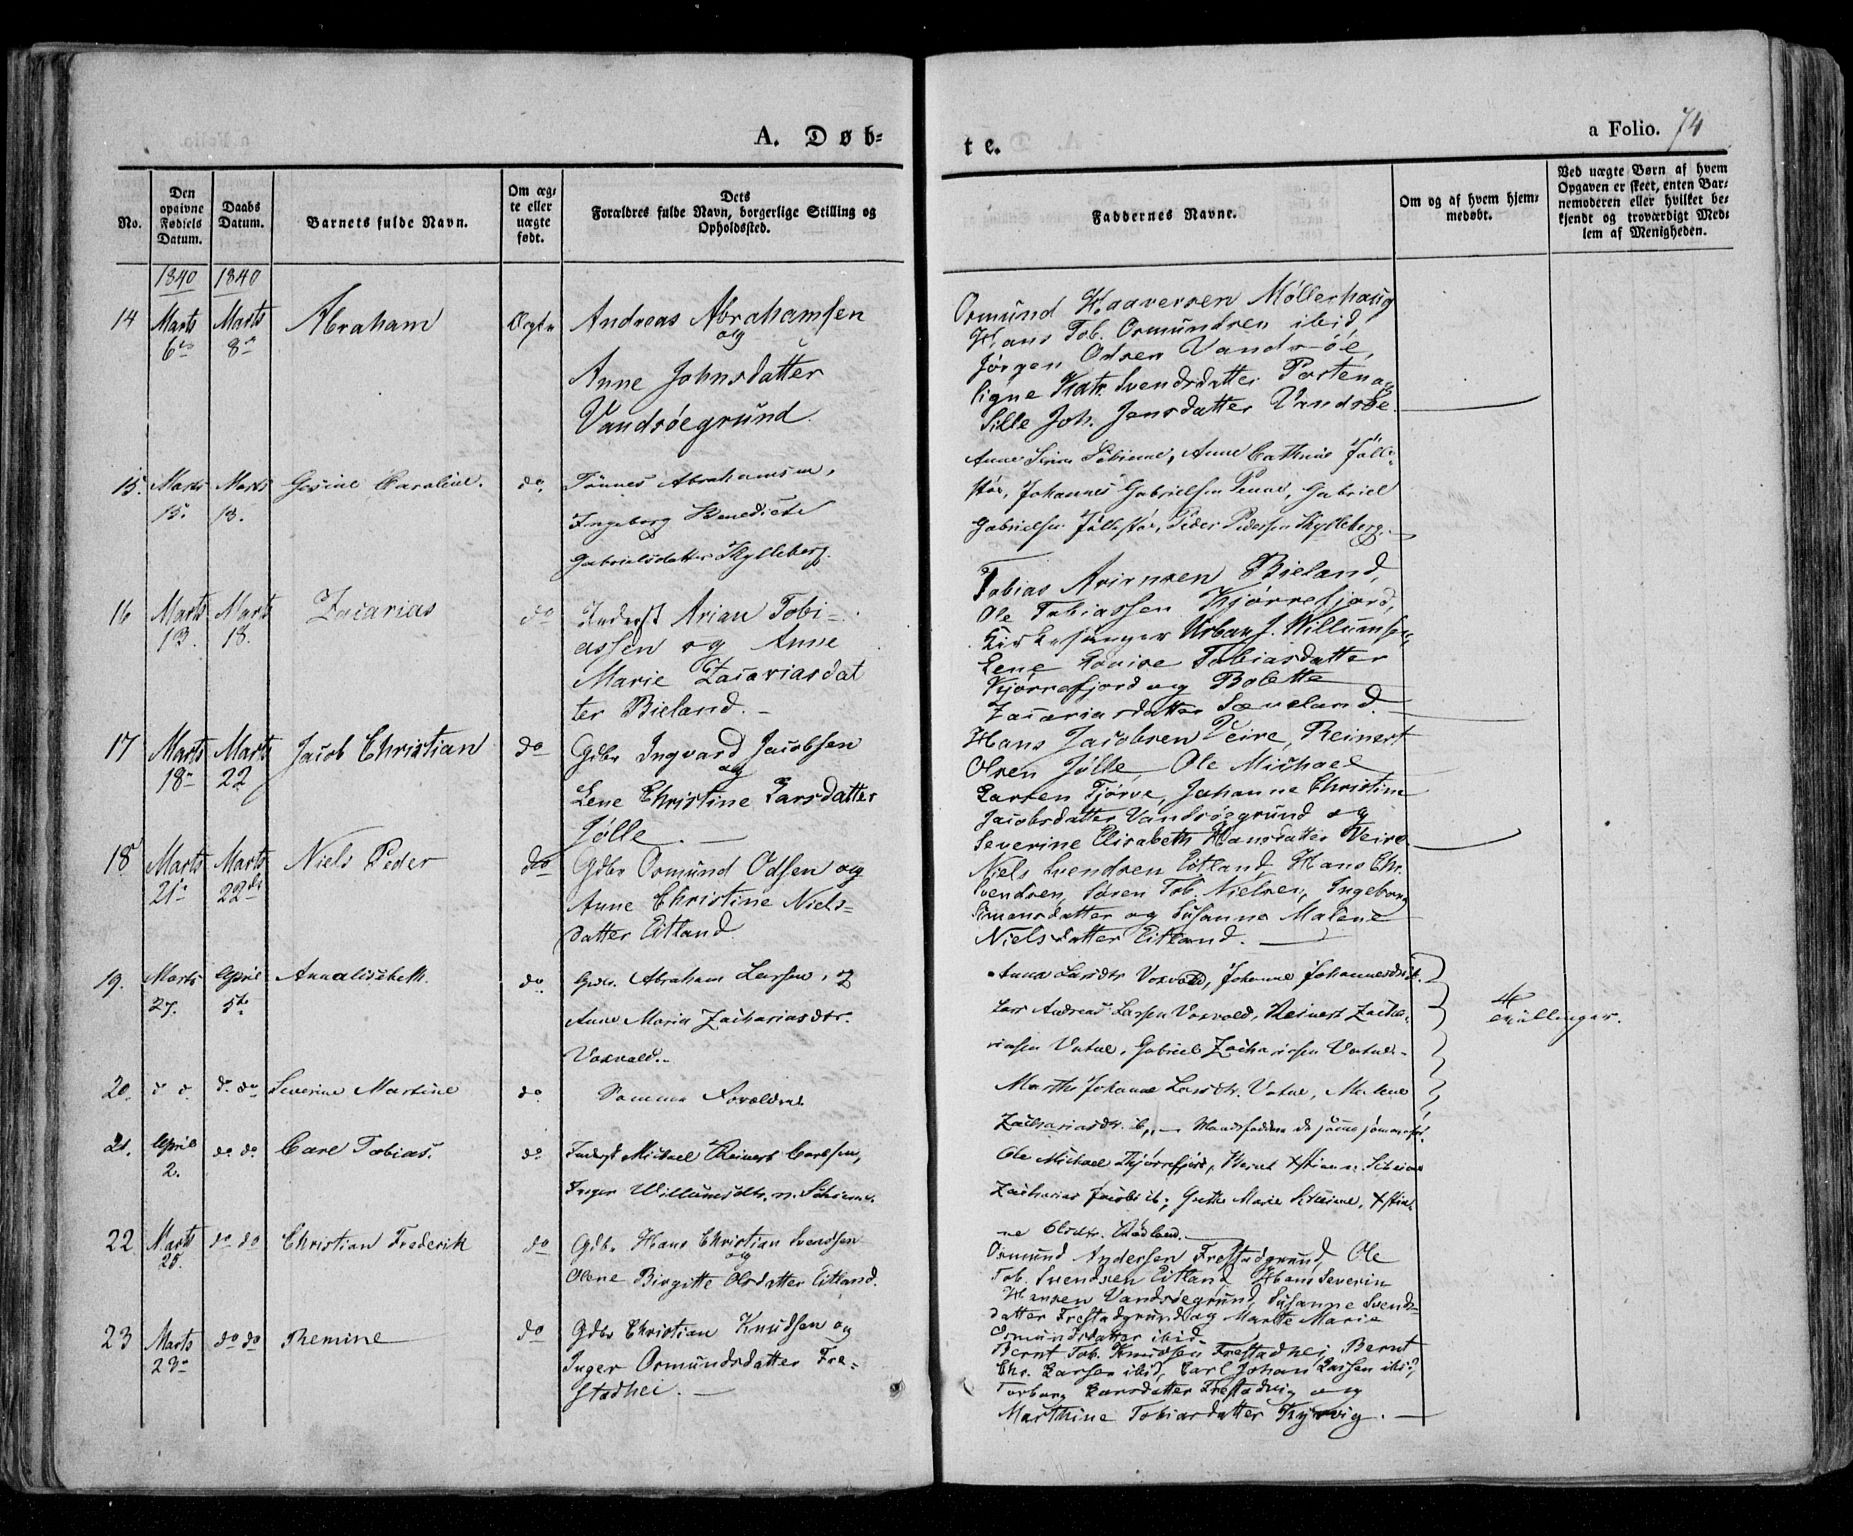 A. Døb-
te.
a Folio. 74
No.
Den opgivne Fødsels Datum.
Daabs Datum.
Barnets fulde Navn.
Om ægte eller uægte født.
Dets
Forældres fulde Navn, borgerlige Stilling og Opholdssted.
Faddernes Navne.
Om og af hvem hjemmedøbt.
Ved uægte Børn af hvem
Opgaven er skeet, enten Bar-
nemoderen eller hvilket be-
kjendt og troværdigt Med-
lem af Menigheden.
1840 1840
14 Marts 6te Marts 8de Abraham Ægte
Andreas Abrahamsen
og
Anne Johnsdatter
Vandsøegrund.
Ormund Haaversen Møllerhaug
Hans Tob. Ormundsen ibid,
Jørgen Odsen Vandsøe,
Signe Katr. Svendsdatter
Sille Joh. Jensdatter Vandsøe.
15. Marts 15. Marts 18. Gesine Caroline. do.
Tønnes Abrahamsen,
Ingeborg Benedicte
Gabrielsdatter Kylleberg.
Johannes Gabrielsen Penne, Gabriel
Gabrielsen Jøllestø, Peder Pedersen Kylleberg.
16 Marts 13. Marts 18. Zacarias do
Inderst Arian Tobi-
assen og Anne
Marie Zacariasdat
ter Bieland.
Tobias Bieland,
Ole Tobiassen Kjørrefjord,
Kirkesanger Urban J. Willumsen,
Lene Lovise Tobiasdatter
Kjørrefjord og Bolette
Zacariasdatter Sæveland.
17 Marts 18de Marts 22 Jacob Christian do
Gdbr Ingvard Jacobsen
og
Lene Christine Larsdatter
Jølle
Hans Jacobsen Veire, Reinert
Olsen Jølle, Ole Michael
Larsen Tjørve, Johanne Christine
Jacobsdatter Vandsøegrund og
Severine Elisabeth Hansdatter Veire
18 Marts 21de Marts 22de Niels Peder do
Gdbr Ormund Odsen og
Anne Christine Niels-
datter Eitland
Niels Svendsen Eitland, Hans Chr.
Svendsen, Søren Tob. Nielsen, Ingeborg
Simonsdatter og Susanne Malene
Nielsdatter Eitland.
19. Marts 27. April 5te Anna Elisebeth. do.
Gdbr. Abraham Larsen, og
Anne Maria Zachariasdtr.
Voxvold.
Anna Larsdtr Voxvold, Johanne Johannesdtr
Lars Andreas Larsen Voxvold, Reinert Zacha-
riasen Vatne, Gabriel Zachariasen Vatne
20. d. d. d. do Severine Martine do
Samme Forældre.
Marthe Johanne Larsdtr. Vatne, Malene
Zachariasdtr. ib.
Tvillinger.
21. April 2. do do Carl Tobias. do
Inderst Michael Reinert Carlsen,
Inger Willumsdtr.
Ole Michael Kjørrefjord, Bernt
Zacharias Jacobs ib, Grethe Marie
ne Olsdtr.
22 Marts 25. do do Christian Frederik do
Gdbr Hans Christian Svendsen
og
Olene Birgitte Olsdatter Eitland.
Ormund Andersen Frestadgrund, Ole
Tob. Svendsen Eitland, Hans Severin
Hansen Vandsøegrund, Susanne Svends-
datter Frestadgrund og Marthe Marie
Ormundsdatter ibid.
23 Marts 23de do do Remine do
Gdbr Christian Knudsen og
Inger Ormundsdatter Fre-
stadhei.
Bernt Tob. Knudsen Frestadhei, Bernt
Chr. Larsen ibid, Carl Johan Larsen ibid,
Torborg Larsdatter Frestadvig og
Marthine Tobiasdatter Kjørvig.